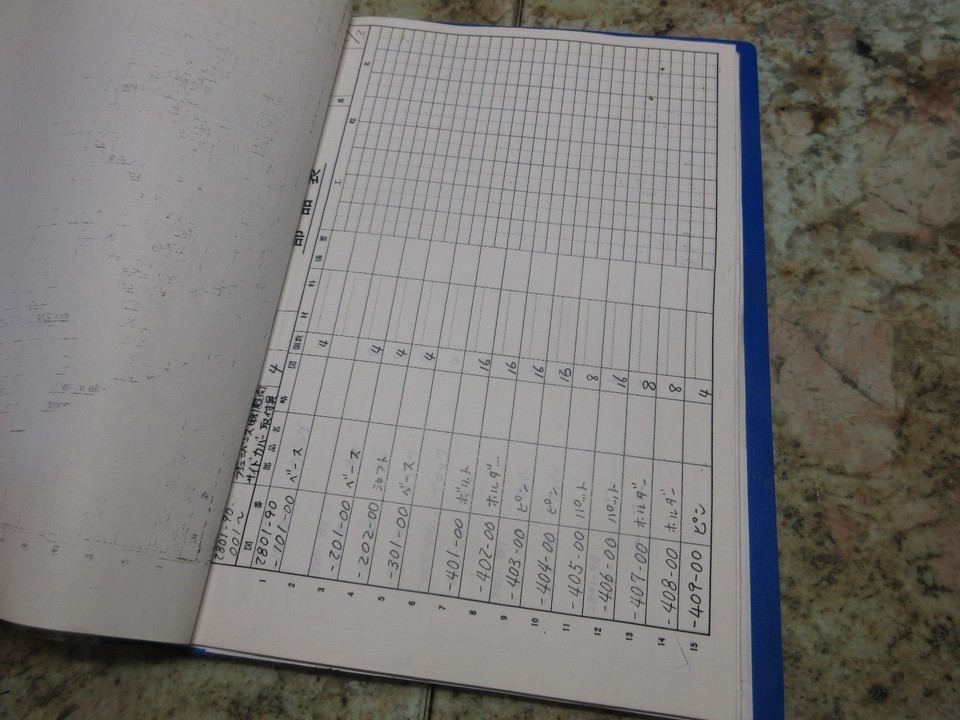 部品表
1/2
2801-90-001~
サイドカバー取付具
図番 部品名 略図 個数 材料 備考 工程
1 2801-90 4
-101-00 ベース
2 4
3 -201-00 ベース
4 -202-00 シャフト 4
5 -301-00 ベース 4
6 4
7 -401-00 ボルト
8 -402-00 ホルダー 16
9 -403-00 ピン 16
10 -404-00 ピン 16
11 -405-00 パット 16
12 -406-00 パット 8
13 -407-00 ホルダー 16
14 -408-00 ホルダー 8
15 -409-00 ピン 8
4